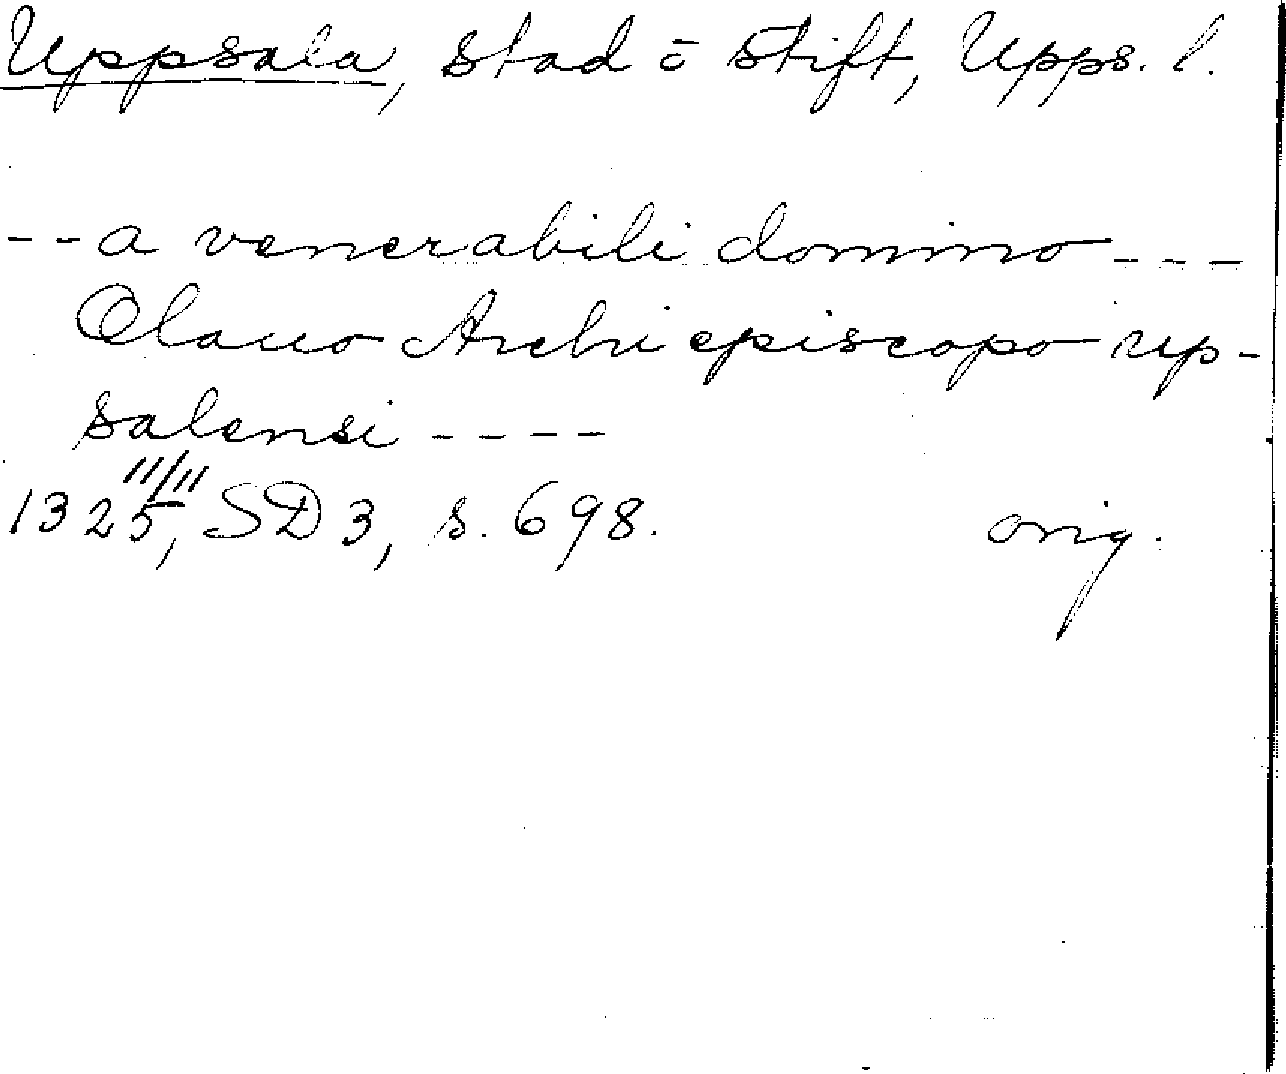 Uppsala, stad o stift, Upps. l.
-- a venerabili domino ---
Olauo Archiepiscopo up-
salensi ----
1325 11/11, SD 3, s. 698. orig.